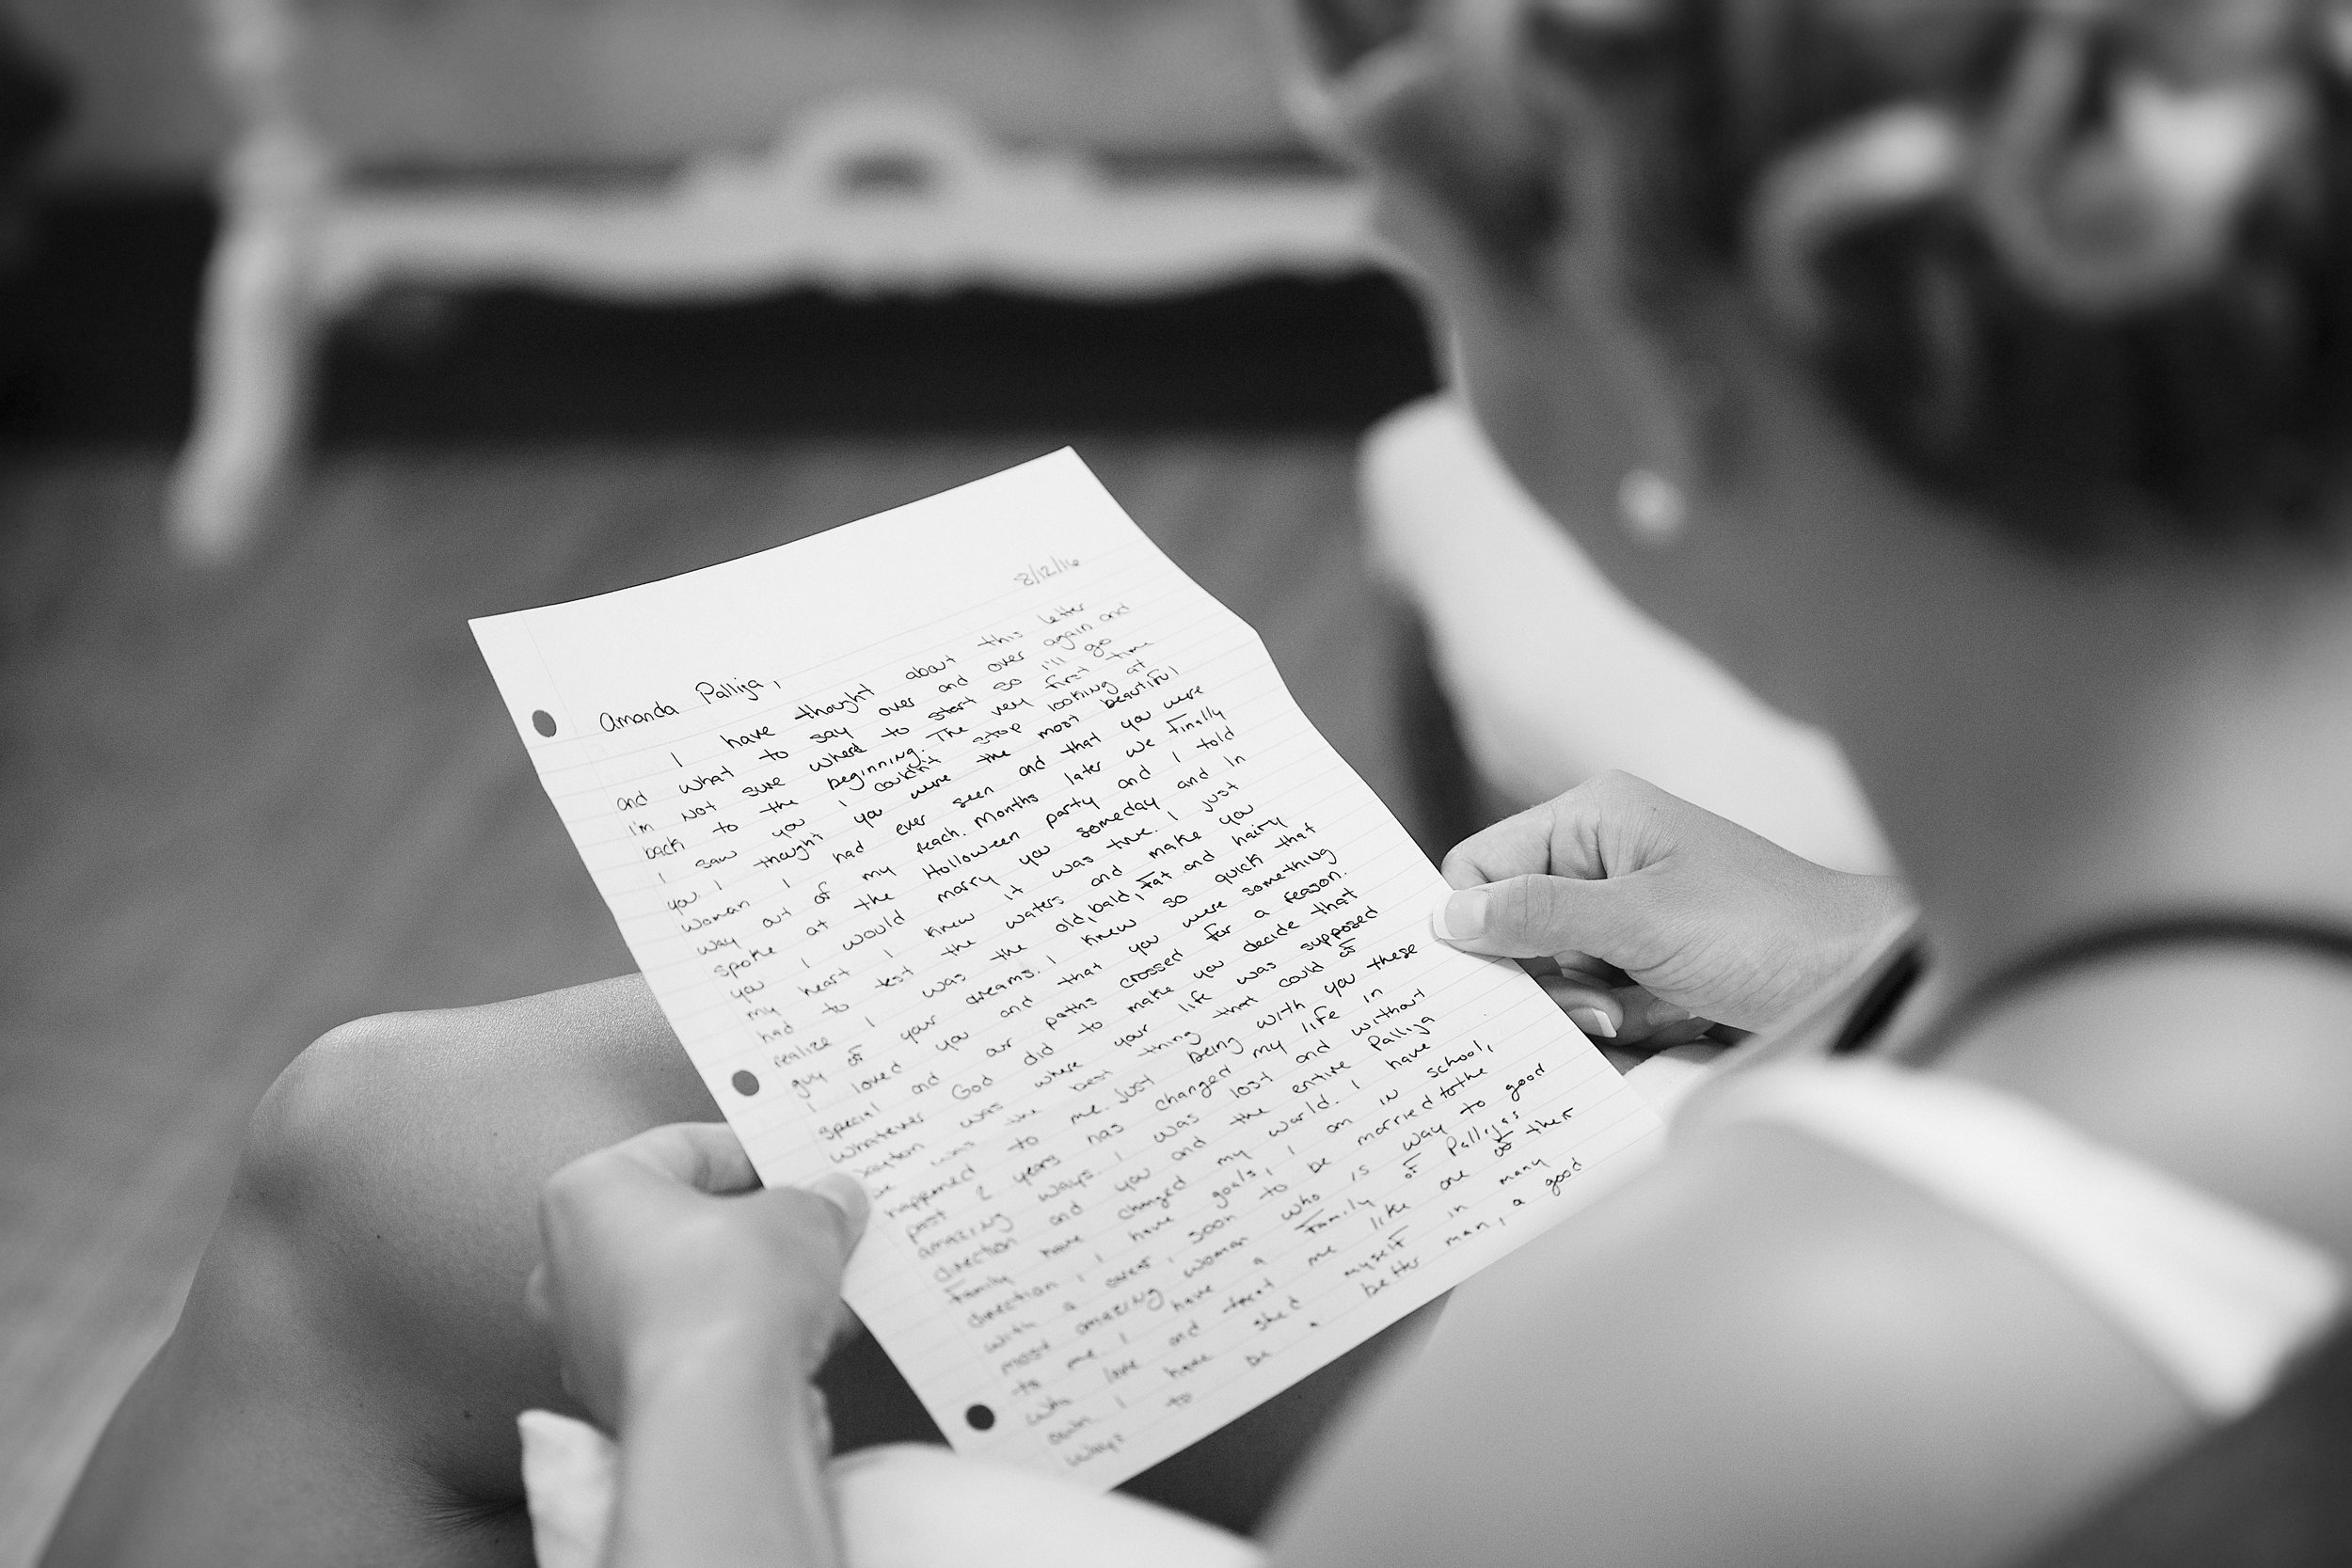 8/12/16
Amanda Pallija,
I have thought about this letter
and what to say over and over again and
I'm not sure where to start so I'll go
back to the beginning. The very first time
I saw you I couldn't stop looking at
you. I thought you were the most beautiful
woman I had ever seen and that you were
way out of my reach. Months later we finally
spoke at the Halloween party and I told
you I would marry you someday and in
my heart I knew it was true. I just
had to test the waters and make you
realize I was the old, bald, fat and hairy
guy of your dreams. I knew so quick that
I loved you and that you were something
special and our paths crossed for a reason.
Whatever God did to make you decide that
Dayton was where your life was supposed
be was the best thing that could of
happened to me. Just being with you these
past 2 years has changed my life in
amazing ways. I was lost and without
direction and you and the entire Pallija
Family have changed my world. I have
direction, I have goals, I am in school,
with a career, soon to be married to the
most amazing woman who is way to good
to me. I have a family of Pallijas
who love and treat me like one of their
own. I have shed myself in many
ways to be a better man, a good